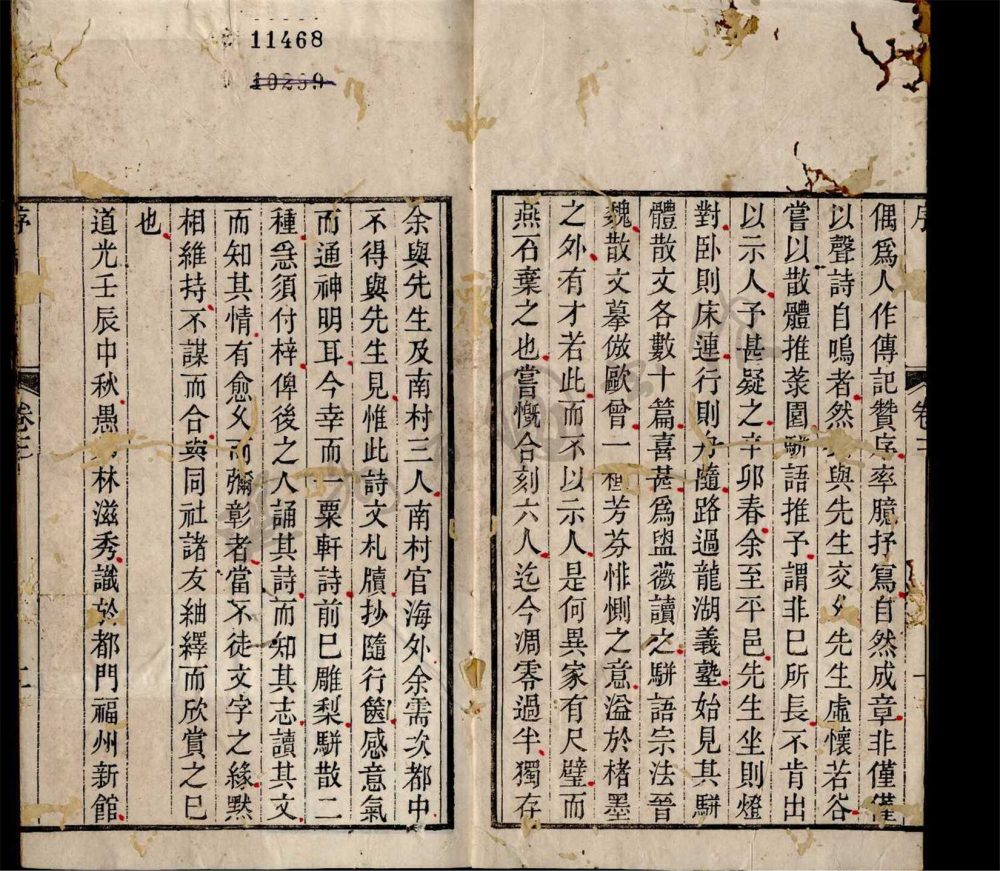 11468
10259
序
偶爲人作傳記贊序率臆抒寫自然成章非僅僅
以聲詩自鳴者然與先生交久先生虛懷若谷
嘗以散體推菉園駢語推予謂非已所長不肯出
以示人予甚疑之辛卯春余至平邑先生坐則燈
對臥則床連行則舟隨路過龍湖義塾始見其駢
體散文各數十篇喜甚爲盥薇讀之駢語宗法晉
魏散文摹倣歐曾一種芳芬悱惻之意溢於楮墨
之外有才若此而不以示人是何異家有尺璧而
燕石棄之也嘗慨合刻六人迄今凋零過半獨存
余與先生及南村三人南村官海外余需次都中
不得與先生見惟此詩文札牘抄隨行篋感意氣
而通神明耳今幸而一粟軒詩前已雕梨駢散二
種急須付梓俾後之人誦其詩而知其志讀其文
而知其情有愈久而彌彰者當不徒文字之緣默
相維持不謀而合與同社諸友紬繹而欣賞之已
也
道光壬辰中秋愚弟林滋秀識於都門福州新館
序